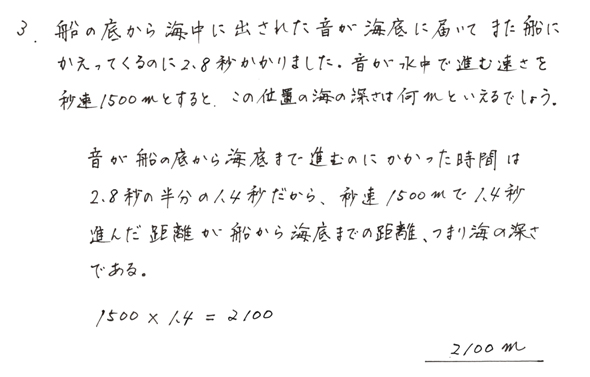 3. 船の底から海中に出された音が海底に届いてまた船に
かえってくるのに2.8秒かかりました。音が水中で進む速さを
秒速1500mとすると、この位置の海の深さは何mといえるでしょう。
音が船の底から海底まで進むのにかかった時間は
2.8秒の半分の1.4秒だから、秒速1500mで1.4秒
進んだ距離が船から海底までの距離、つまり海の深さ
である。
1500 × 1.4 = 2100
2100 m